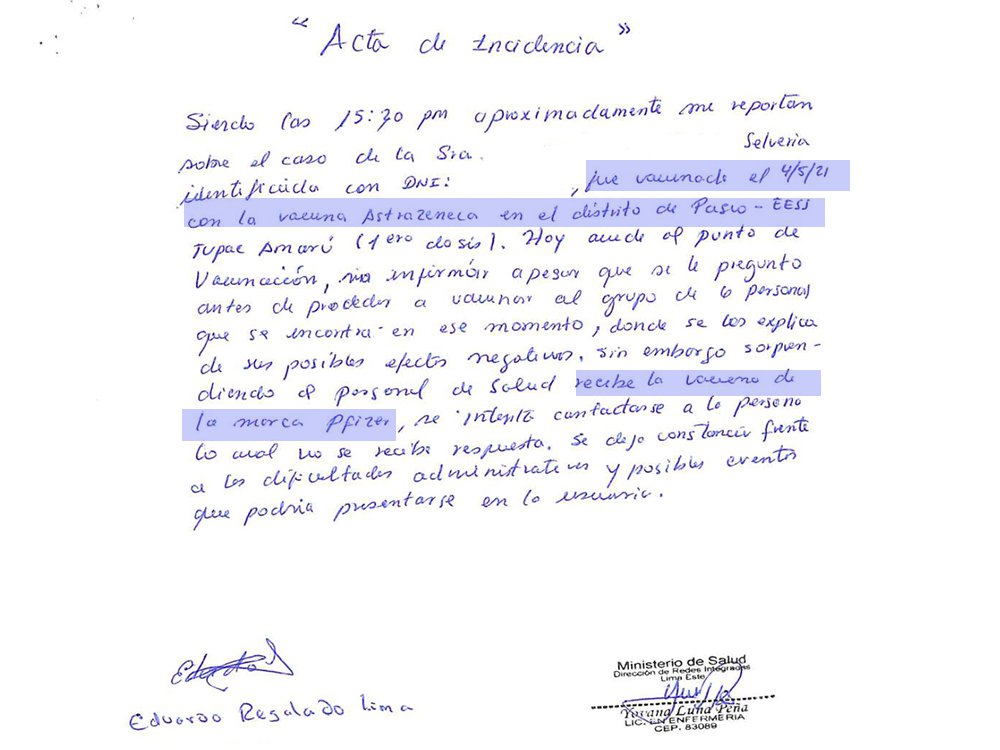 "Acta de Incidencia"
Siendo las 15:30 pm aproximadamente me reportan
sobre el caso de la Sra. Selveria
identificada con DNI: , fue vacunada el 4/5/21
con la vacuna Astrazeneca en el distrito de Pasco - EESS
Tupac Amarú (1ero dosis). Hoy acude al punto de
Vacunación, sin informar apesar que se le pregunto
antes de proceder a vacunar al grupo de 6 personas
que se encontra en ese momento, donde se los explica
de sus posibles efectos negativos. Sin embargo sorpren-
diendo al personal de Salud recibe la vacuna de
la marca Pfizer, se intentó contactarse a la persona
lo cual no se recibe respuesta. Se deja constancia frente
a las dificultades administrativas y posibles eventos
que podria presentarse en la usuaria.
Eduardo Regalado Lima
Ministerio de Salud
Dirección de Redes Integradas
Lima Este
Yovana Luna Peña
LIC. EN ENFERMERIA
CEP. 83089